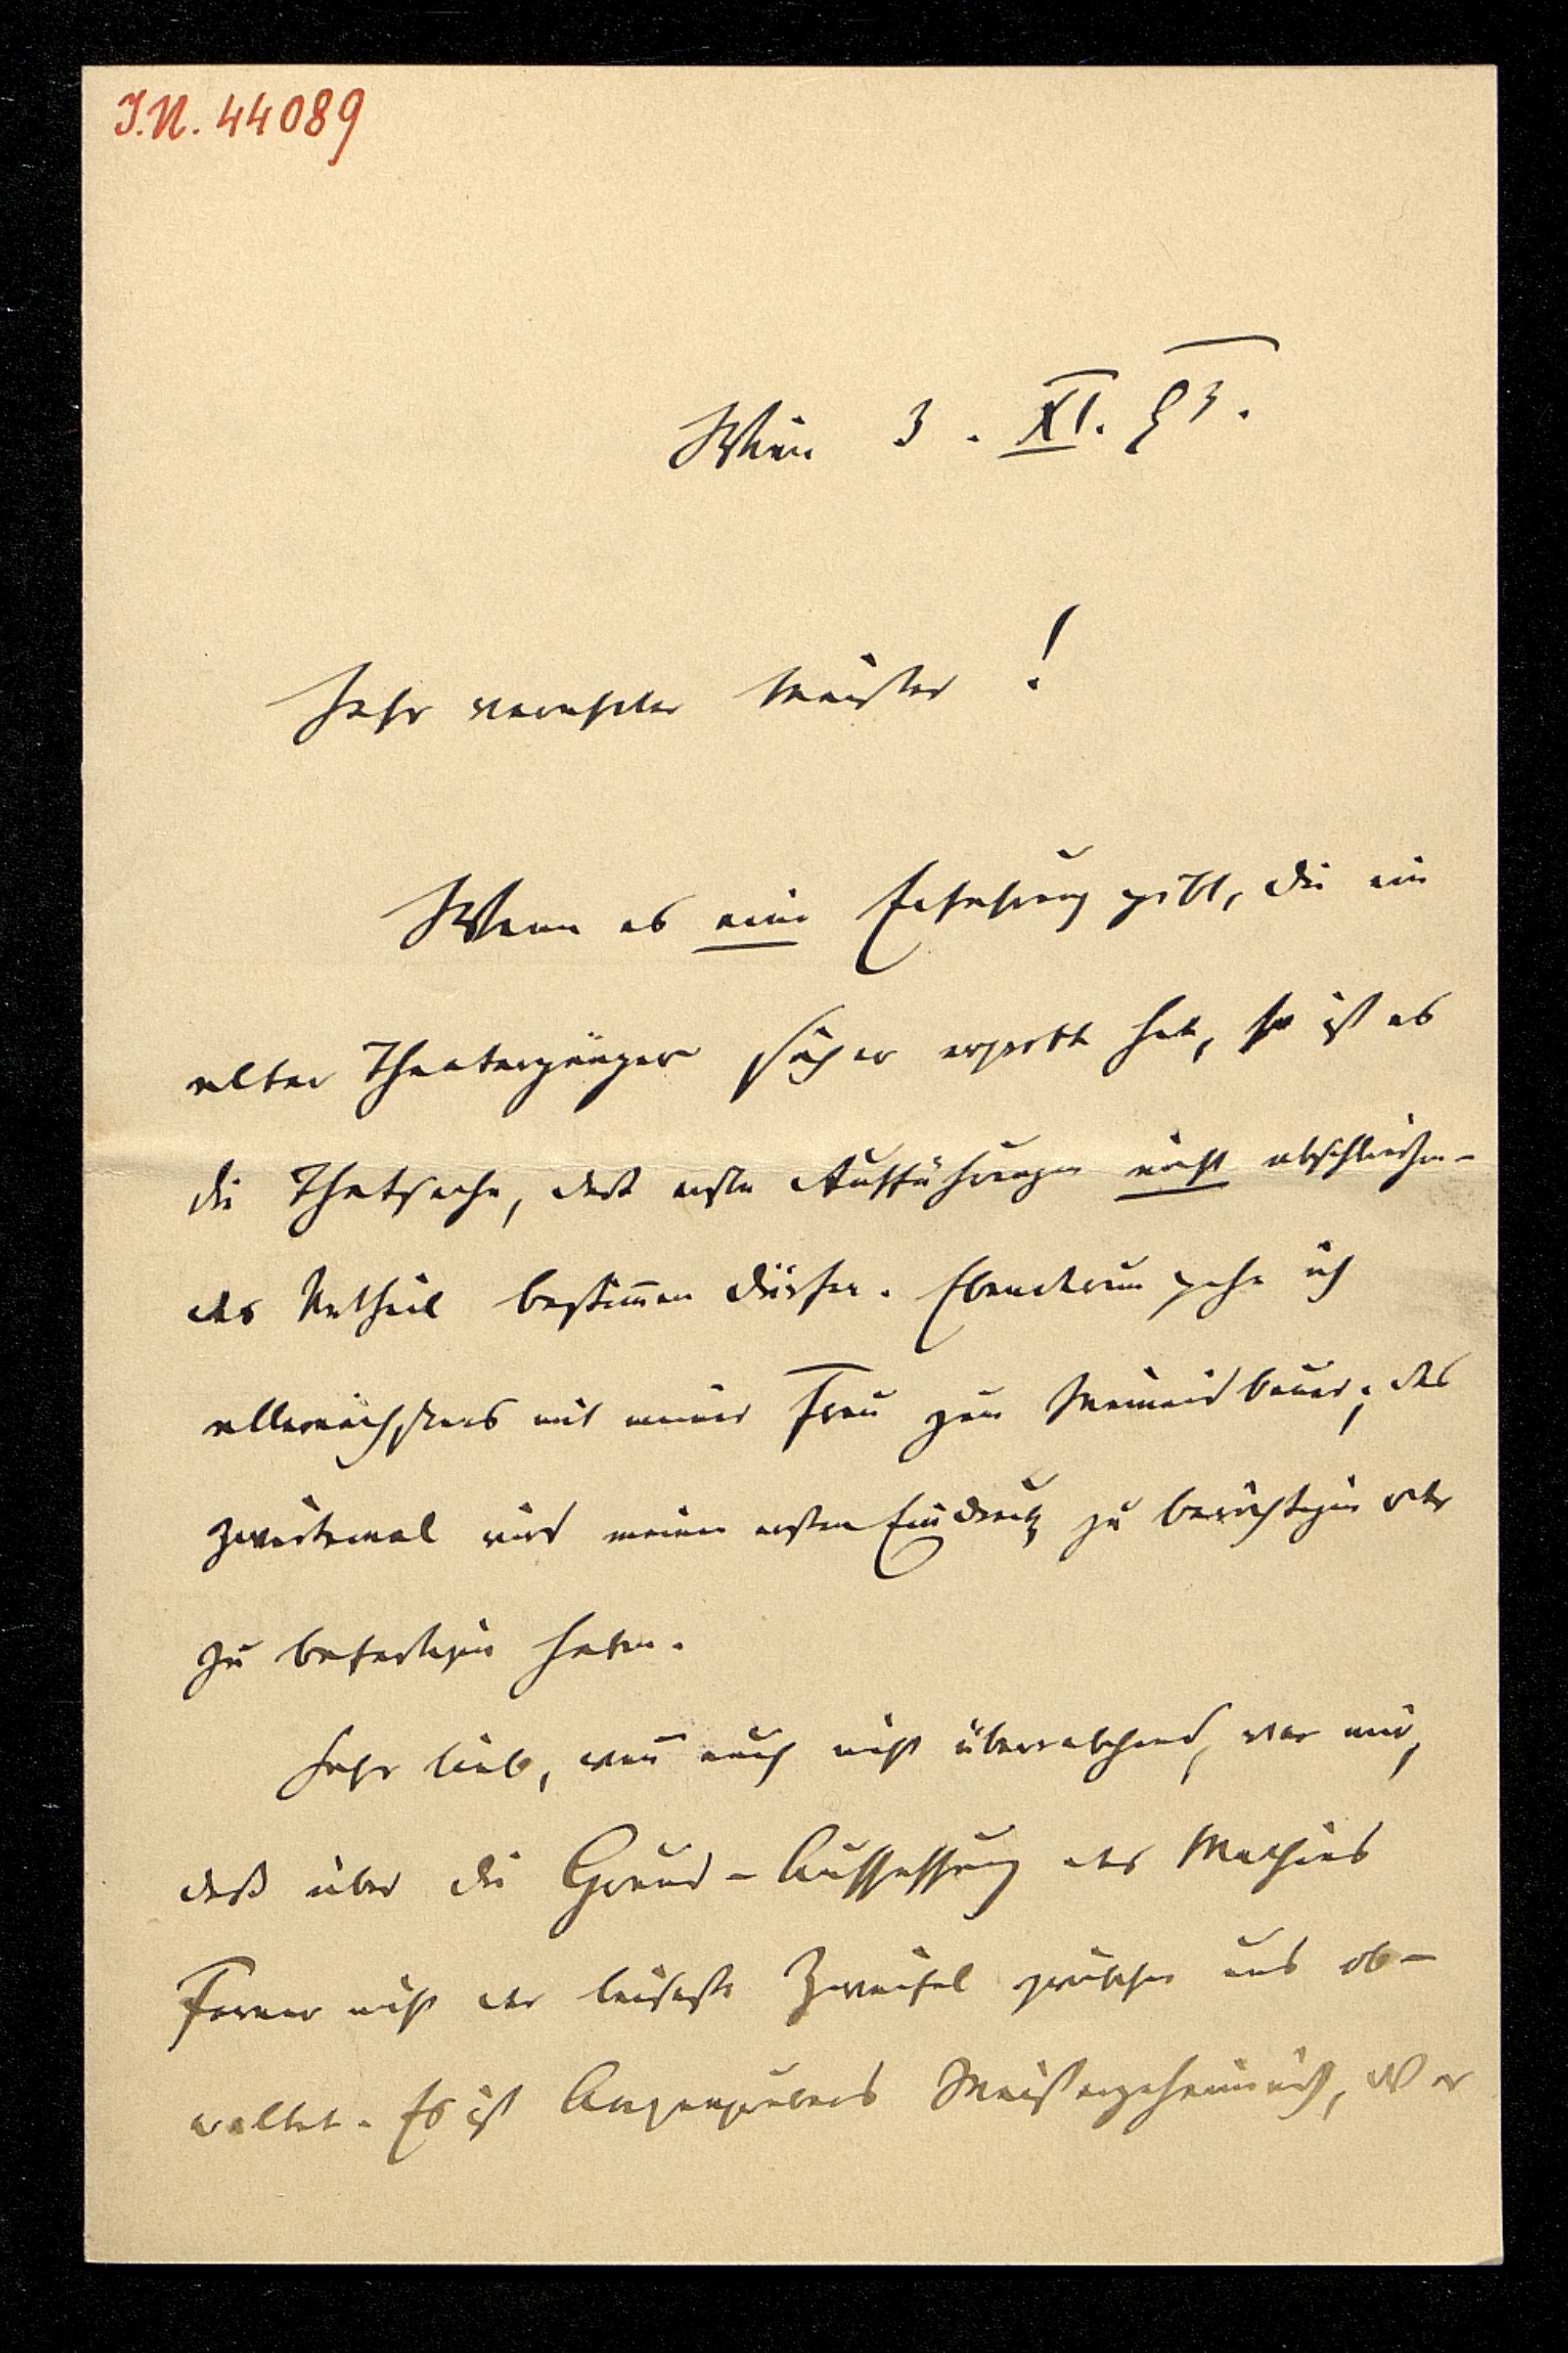 I.N. 44089
Wien 3. XI. 93.
Sehr verehrter Meister!
Wenn es eine Erfahrung gibt, die ein
alter Theatergänger sicher erprobt hat, so ist es
die Thatsache, daß erste Aufführungen nicht abschließen-
des Urtheil bestimmen dürfen. Ebendarum gehe ich
allernächstens mit meiner Frau zum Meineidbauer; das
zweitemal wird meinen ersten Eindruck zu berichtigen oder
zu befestigen haben.
Sehr lieb, wenn̄ auch nicht überraschend, war mir,
daß über die Grund-Auffassung des Mathias
Ferner nicht der leiseste Zweifel zwischen uns ob-
waltet. Es ist Anzengrubers Meistergeheimniß, der